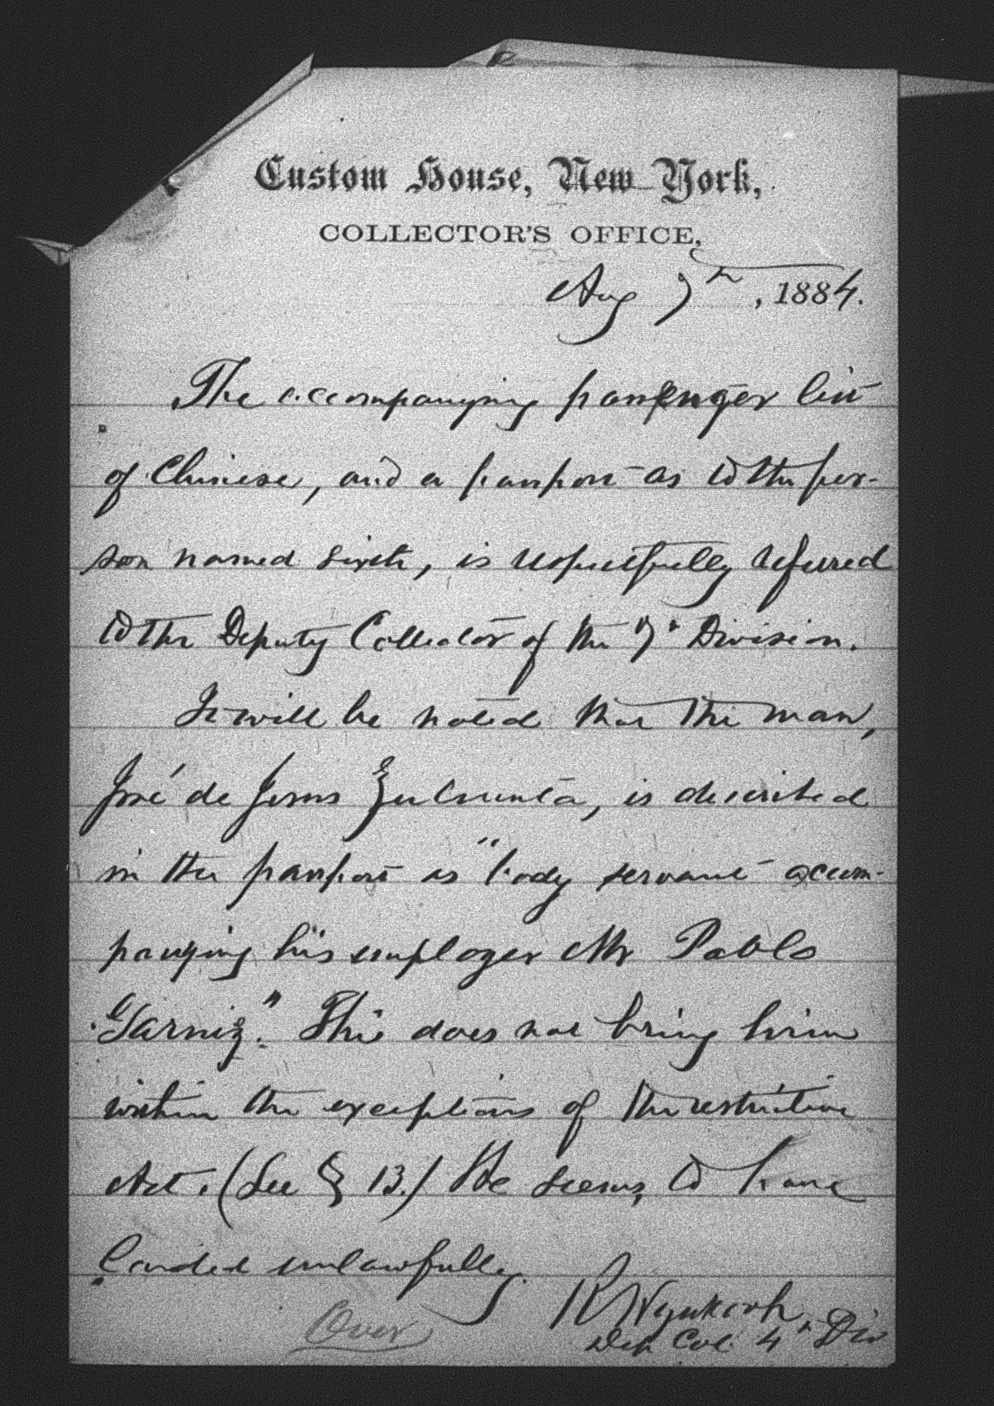 Custom House, New York,
COLLECTOR'S OFFICE,
Aug 7th, 1884.
The accompanying passenger list
of Chinese, and a passport as to the per-
son named sixth, is respectfully referred
to the Deputy Collector of the "7" Division.
It will be noted that the man,
José de Jesus Zulrueta, is described
in the passport as "body servant accom-
panying his employer Mr Pablo
Garniz." This does not bring him
within the exceptions of the restriction
Act. (See § 13.) He seems to have
landed unlawfully.
R Wynkoop
Over
Dep Col. 4th Div